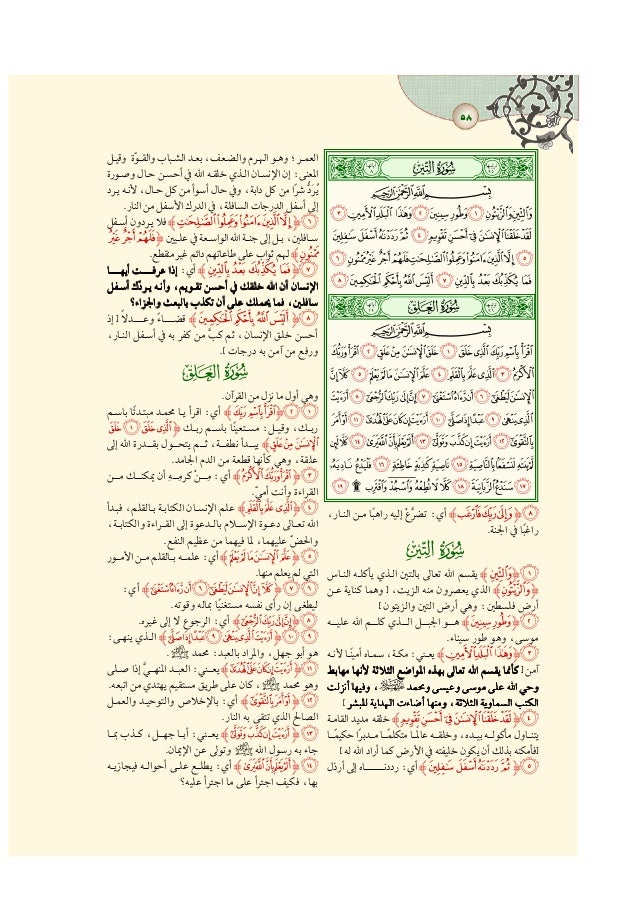 ٥٨
سُورَةُ التِّينِ
بِسْمِ اللَّهِ الرَّحْمَٰنِ الرَّحِيمِ
وَالتِّينِ وَالزَّيْتُونِ ١ وَطُورِ سِينِينَ ٢ وَهَٰذَا الْبَلَدِ الْأَمِينِ ٣
لَقَدْ خَلَقْنَا الْإِنسَانَ فِي أَحْسَنِ تَقْوِيمٍ ٤ ثُمَّ رَدَدْنَاهُ أَسْفَلَ سَافِلِينَ
٥ إِلَّا الَّذِينَ آمَنُوا وَعَمِلُوا الصَّالِحَاتِ فَلَهُمْ أَجْرٌ غَيْرُ مَمْنُونٍ ٦
فَمَا يُكَذِّبُكَ بَعْدُ بِالدِّينِ ٧ أَلَيْسَ اللَّهُ بِأَحْكَمِ الْحَاكِمِينَ ٨
سُورَةُ الْعَلَقِ
بِسْمِ اللَّهِ الرَّحْمَٰنِ الرَّحِيمِ
اقْرَأْ بِاسْمِ رَبِّكَ الَّذِي خَلَقَ ١ خَلَقَ الْإِنسَانَ مِنْ عَلَقٍ ٢ اقْرَأْ وَرَبُّكَ
الْأَكْرَمُ ٣ الَّذِي عَلَّمَ بِالْقَلَمِ ٤ عَلَّمَ الْإِنسَانَ مَا لَمْ يَعْلَمْ ٥ كَلَّا إِنَّ
الْإِنسَانَ لَيَطْغَىٰ ٦ أَن رَّآهُ اسْتَغْنَىٰ ٧ إِنَّ إِلَىٰ رَبِّكَ الرُّجْعَىٰ ٨ أَرَأَيْتَ
الَّذِي يَنْهَىٰ ٩ عَبْدًا إِذَا صَلَّىٰ ١٠ أَرَأَيْتَ إِن كَانَ عَلَى الْهُدَىٰ ١١ أَوْ أَمَرَ
بِالتَّقْوَىٰ ١٢ أَرَأَيْتَ إِن كَذَّبَ وَتَوَلَّىٰ ١٣ أَلَمْ يَعْلَم بِأَنَّ اللَّهَ يَرَىٰ ١٤ كَلَّا لَئِن
لَّمْ يَنتَهِ لَنَسْفَعًا بِالنَّاصِيَةِ ١٥ نَاصِيَةٍ كَاذِبَةٍ خَاطِئَةٍ ١٦ فَلْيَدْعُ نَادِيَهُ
١٧ سَنَدْعُ الزَّبَانِيَةَ ١٨ كَلَّا لَا تُطِعْهُ وَاسْجُدْ وَاقْتَرِب ۩ ١٩
٨ ﴿وَإِلَىٰ رَبِّكَ فَارْغَب﴾ أي: تضرَّعْ إليه راهبًا من النـار،
راغبًا في الجنة.
سُورَةُ التِّينِ
١ ﴿وَالتِّينِ﴾ يقسم الله تعالى بالتين الـذي يأكلـه النـاس
﴿وَالزَّيْتُونِ﴾ الذي يعصرون منه الزيت، [وهما كناية عـن
أرض فلسطين: وهي أرض التين والزيتون]
٢ ﴿وَطُورِ سِينِينَ﴾ هـو الجبـل الـذي كلـم الله عليـه
موسى، وهو طور سيناء.
٣ ﴿وَهَٰذَا الْبَلَدِ الْأَمِينِ﴾ يعني: مكـة، سماه أمينًـا لأنـه
آمن [كأنما يقسم الله تعالى بهذه المواضع الثلاثة لأنها مهابط
وحي الله على موسى وعيسى ومحمد ﷺ، وفيها أنزلت
الكتب السماوية الثلاثة، ومنها أضاءت الهداية للبشر]
٤ ﴿لَقَدْ خَلَقْنَا الْإِنسَانَ فِي أَحْسَنِ تَقْوِيمٍ﴾ خلقه مديد القامة
يتناول مأكولـه بيـده، وخلقـه عالمـا متكلمًـا مـدبرًا حكيمًـا
[فأمكنه بذلك أن يكون خليفته في الأرض كما أراد الله له]
٥ ﴿ثُمَّ رَدَدْنَاهُ أَسْفَلَ سَافِلِينَ﴾ أي: رددنـاه إلى أرذل
العمـر؛ وهـو الهـرم والضـعف، بعـد الشـباب والقـوّة وقيـل
المعنى: إن الإنسـان الـذي خلقـه الله في أحسـن حـال وصـورة
يُرَدُّ شرًا من كل دابة، وفي حال أسوأ من كل حال، لأنـه يـرد
إلى أسفل الدرجات السافلة، في الدرك الأسفل من النار.
٦ ﴿إِلَّا الَّذِينَ آمَنُوا وَعَمِلُوا الصَّالِحَاتِ﴾ فلا يـردون أسـفل
سـافلين، بـل إلى جنـة الله الواسـعة في علـيين ﴿فَلَهُمْ أَجْرٌ غَيْرُ
مَمْنُونٍ﴾ لـهم ثواب على طاعاتهم دائم غير مقطع.
٧ ﴿فَمَا يُكَذِّبُكَ بَعْدُ بِالدِّينِ﴾ أي: إذا عرفـت أيهـا
الإنسان أن الله خلقك في أحسن تقـويم، وأنـه يـردّك أسـفل
سافلين، فما يحملك على أن تكذب بالبعث والجزاء؟
٨ ﴿أَلَيْسَ اللَّهُ بِأَحْكَمِ الْحَاكِمِينَ﴾ قضـاءً وعـدلاً [إذ
أحسن خلق الإنسان، ثم كبَّ من كفر به في أسـفل النـار،
ورفع من آمن به درجات].
سُورَةُ الْعَلَقِ
وهي أول ما نزل من القرآن.
١ ٢ ﴿اقْرَأْ بِاسْمِ رَبِّكَ﴾ أي: اقرأ يـا محمد مبتدئًا باسـم
ربـك، وقيـل: مستعينًـا باسـم ربـك ﴿الَّذِي خَلَقَ ١ خَلَقَ
الْإِنسَانَ مِنْ عَلَقٍ﴾ يبـدأ نطفـة، ثـم يتحـول بقـدرة الله إلى
علقة، وهي كأنها قطعة من الدم الجامد.
٣ ﴿اقْرَأْ وَرَبُّكَ الْأَكْرَمُ﴾ أي: مِـنْ كرمـه أن يمكنـك مـن
القراءة وأنت أميّ.
٤ ﴿الَّذِي عَلَّمَ بِالْقَلَمِ﴾ علم الإنسـان الكتابـة بـالقلم، فبـدأ
الله تعـالى دعـوة الإسـلام بالـدعوة إلى القـراءة والكتابـة،
والحضّ عليهما، لما فيهما من عظيم النفع.
٥ ﴿عَلَّمَ الْإِنسَانَ مَا لَمْ يَعْلَمْ﴾ أي: علمـه بـالقلم مـن الأمـور
التي لم يعلم منها.
٦ ٧ ﴿كَلَّا إِنَّ الْإِنسَانَ لَيَطْغَىٰ ٦ أَن رَّآهُ اسْتَغْنَىٰ﴾ أي:
ليطغى إن رأى نفسه مستغنيًا بماله وقوته.
٨ ﴿إِنَّ إِلَىٰ رَبِّكَ الرُّجْعَىٰ﴾ أي: الرجوع لا إلى غيره.
٩ ١٠ ﴿أَرَأَيْتَ الَّذِي يَنْهَىٰ ٩ عَبْدًا إِذَا صَلَّىٰ﴾ الـذي ينهـى:
هو أبو جهل، والمراد بالعبد: محمد ﷺ.
١١ ﴿أَرَأَيْتَ إِن كَانَ عَلَى الْهُدَىٰ﴾ يعـني: العبـد المنهـيَّ إذا صـلى
وهو محمد ﷺ، كان على طريق مستقيم يهتدي من اتبعه.
١٢ ﴿أَوْ أَمَرَ بِالتَّقْوَىٰ﴾ أي: بـالإخلاص والتوحيـد والعمـل
الصالح الذي تتقى به النار.
١٣ ﴿أَرَأَيْتَ إِن كَذَّبَ وَتَوَلَّىٰ﴾ يعـني: أبـا جهـل، كـذب بمـا
جاء به رسول الله ﷺ وتولى عن الإيمان.
١٤ ﴿أَلَمْ يَعْلَم بِأَنَّ اللَّهَ يَرَىٰ﴾ أي: يطلـع علـى أحوالـه فيجازيـه
بها، فكيف اجترأ على ما اجترأ عليه؟